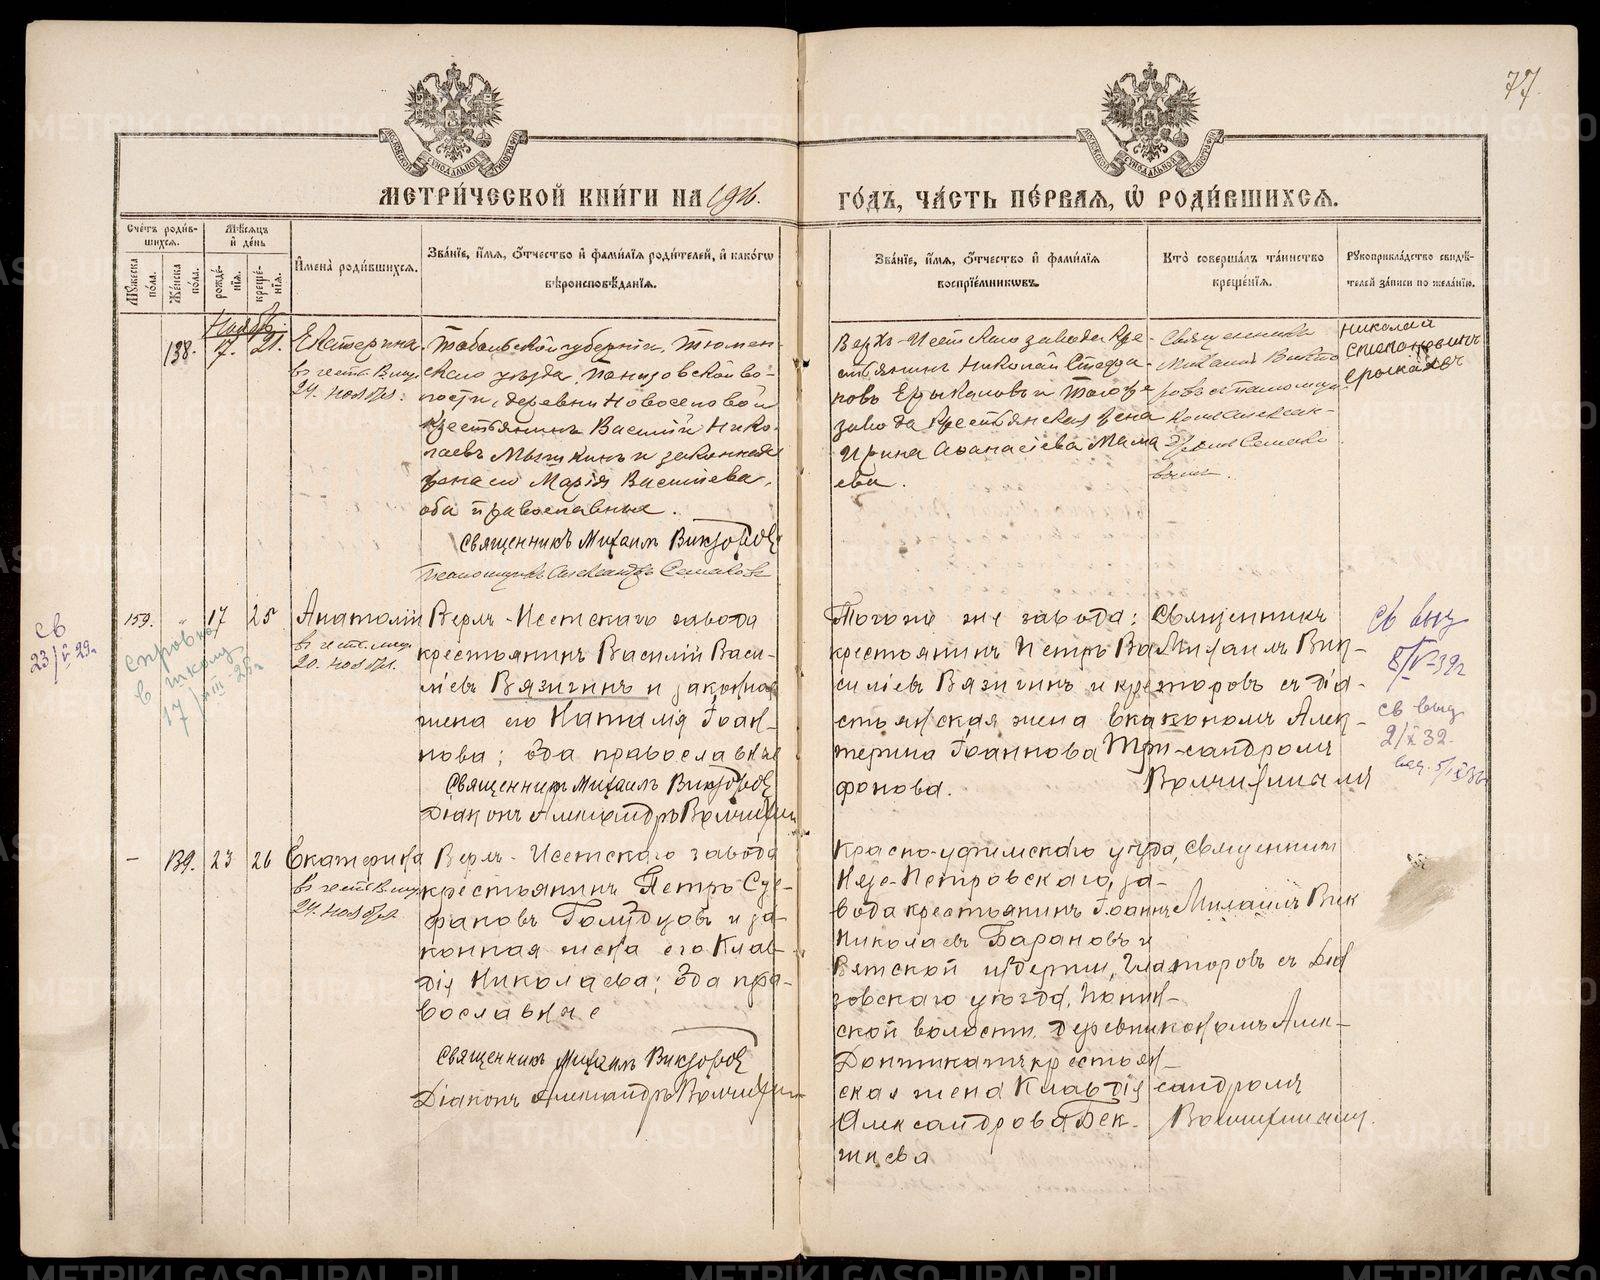 77
МОСКОВСКОЙ СѴНОДАЛЬНОЙ ТИПОГРАФІИ
МОСКОВСКОЙ СѴНОДАЛЬНОЙ ТИПОГРАФІИ
МЕТРИ́ЧЕСКОЙ КНИ́ГИ НА 1916.
ГО́ДЪ, ЧА́СТЬ ПЕ́РВАѦ, Ѡ҆ РОДИ́ВШИХСѦ.
Сче́тъ роди́в-
шихсѧ.
Мѣ́сѧцъ
и҆ де́нь
Мꙋ́жеска
по́ла.
Же́нска
по́ла.
рожде́-
нїѧ.
креще́-
нїѧ.
И҆мена̀ роди́вшихсѧ.
Зва́нїе, и҆́мѧ, ѻ҆́тчество и҆ фами́лїѧ роди́телей, и҆ како́гѡ
вѣроисповѣ́данїѧ.
Зва́нїе, и҆́мѧ, ѻ҆́тчество и҆ фами́лїѧ
воспрїе́мникѡвъ.
Кто̀ соверша́лъ та́инство
креще́нїѧ.
Рꙋкоприкла́дство свидѣ́-
телей за́писи по жела́нїю.
Ноябрь
138. 17. 21. Екатерина
въ честь Вмуч.
24. ноября.
Тобольской губерніи, Тюмен-
скаго уѣзда, во-
лости, деревни Новоселовой
крестьянинъ Василій Нико-
лаевъ Мышкинъ и законная
жена его Марія Васильева,
оба православные.
Священникъ Михаилъ Викторовъ
Псаломщикъ Александръ Семаковъ
Верхъ-Исетскаго завода кре-
стьянинъ Николай Стефа-
новъ Ерыкаловъ и того же
завода крестьянская жена
Ирина Аѳанасіева Мама-
ева.
Священникъ
Михаилъ Викто-
ровъ съ псаломщи-
комъ Алексан-
дромъ Семако-
вымъ.
Николай
Степановичъ
Ерыкаловъ
159. " 17 25 Анатолій
въ честь муч.
20. ноября.
Верхъ-Исетскаго завода
крестьянинъ Василій Васи-
ліевъ Вязигинъ и законная
жена его Наталія Іоан-
нова; оба православные
Священникъ Михаилъ Викторовъ
Діаконъ Александръ
Того же завода:
крестьянинъ Петръ Ва-
силіевъ Вязигинъ и кре-
стьянская жена Ека-
терина Іоаннова Три-
фонова.
Священникъ
Михаилъ Вик-
торовъ съ діа-
кономъ Алек-
сандромъ
св
23/V 29г
справка
в школу
17/VIII-25г
св выд
8/V-32г
св выд
2/X 32.
— 139. 23 26 Екатерина
въ честь Вмуч.
24. ноября
Верхъ-Исетскаго завода
крестьянинъ Петръ Сте-
фановъ Голубцовъ и за-
конная жена его Клав-
дія Николаева; оба пра-
вославные
Священникъ Михаилъ Викторовъ
Діаконъ Александръ
Красно-уфимскаго уѣзда,
Нязе-Петровскаго за-
вода крестьянинъ Іоаннъ
Николаевъ Барановъ и
Вятской губерніи, Гла-
зовскаго уѣзда,
ской волости, деревни
крестьян-
ская жена Клавдія
Александрова
Священникъ
Михаилъ Вик
торовъ съ Діа
кономъ Алек-
сандромъ
METRIKI.GASO-URAL.RU